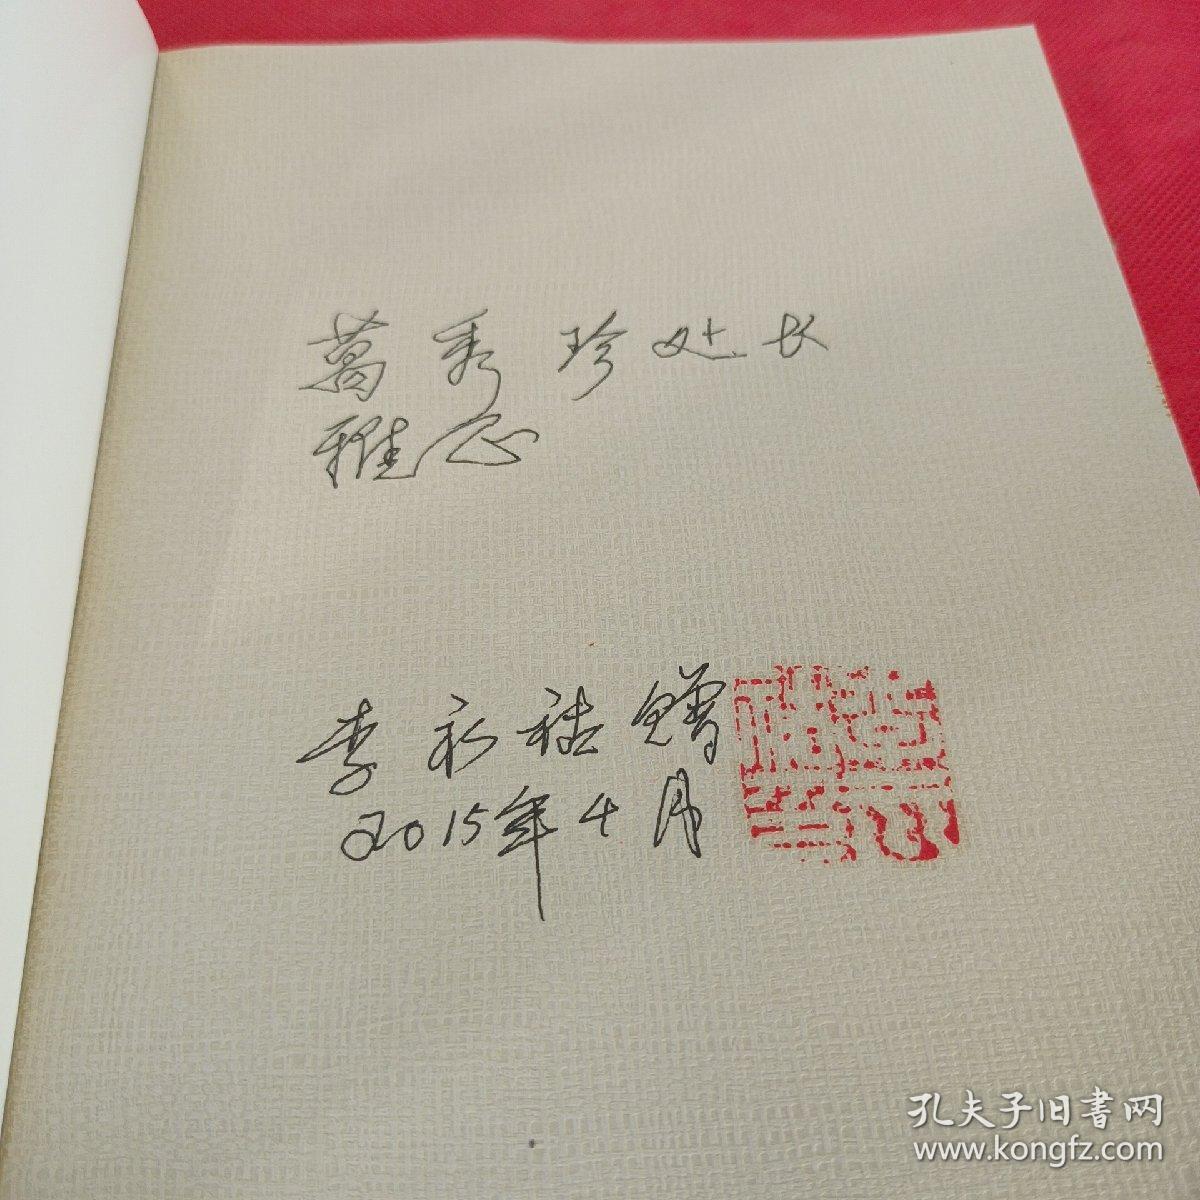 葛秀珍处长
雅念
李永祜赠
2015年4月
孔夫子旧书网
www.kongfz.com